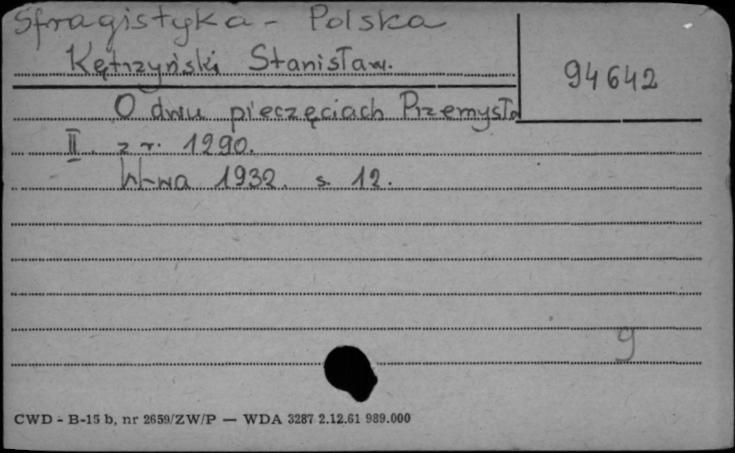 Sfragistyka - Polska
Kętrzyński Stanisław.
94642
O dwu pieczęciach Przemysła
II. z r. 1290.
W-wa 1932. s. 12.
9
CWD - B-15 b, nr 2659/ZW/P — WDA 3287 2.12.61 989.000